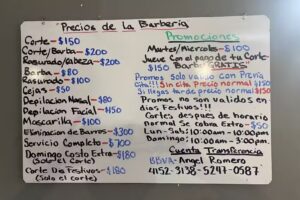 Precios de la Barberia
Corte-$150
Corte/Barba-$200
Rasurado/Cabeza-$200
Barba-$80
Rasurado-$100
Cejas-$50
Depilacion Nasal-$80
Depilacion Facial-$150
Mascarilla-$100
Eliminacion de Barros-$300
Servicio Completo-$700
Domingo Costo Extra-$180
(Solo el Corte)
Corte Dia Festivos-$180
(Solo el corte)
Promociones
Martes/Miercoles-$100
Jueves Con el pago de tu Corte
$150 Barba GRATIS
Promos Solo valido con Previa
Cita!!! Sin cita Precio normal $150
Si llegas tarde precio normal $150
Promos no son validos en
dias Festivos!!!
Cortes despues de horario
normal Se cobra Extra-$50
Lun-Sab: 10:00am-10:00pm
Domingo: 10:00am-3:00pm
Cuenta Transferencia
BBVA-Angel Romero
4152-3138-5247-0587